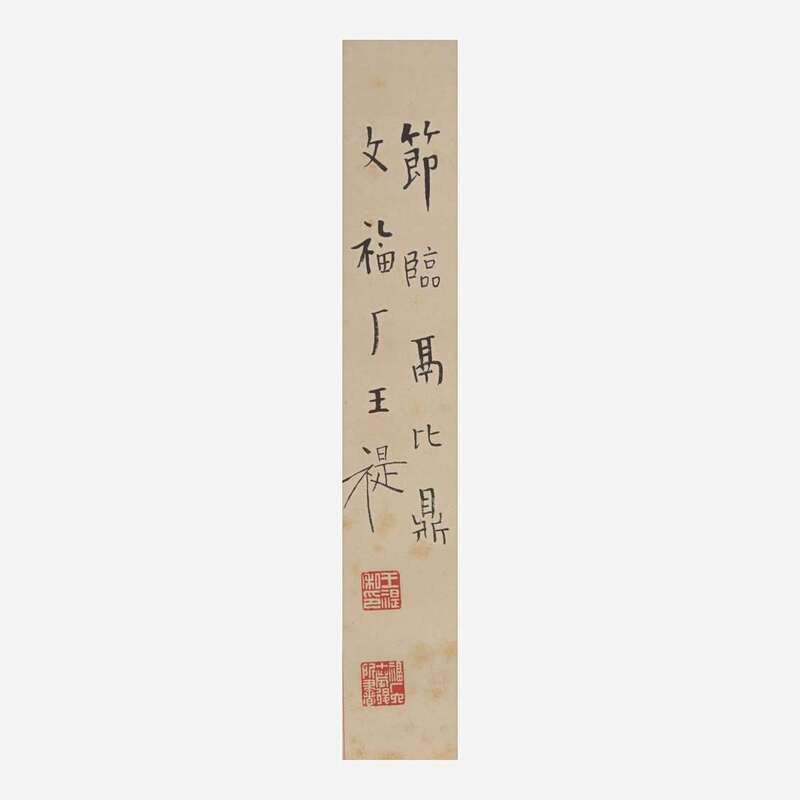 節臨鬲比鼎
文福厂王禔
王禔私印